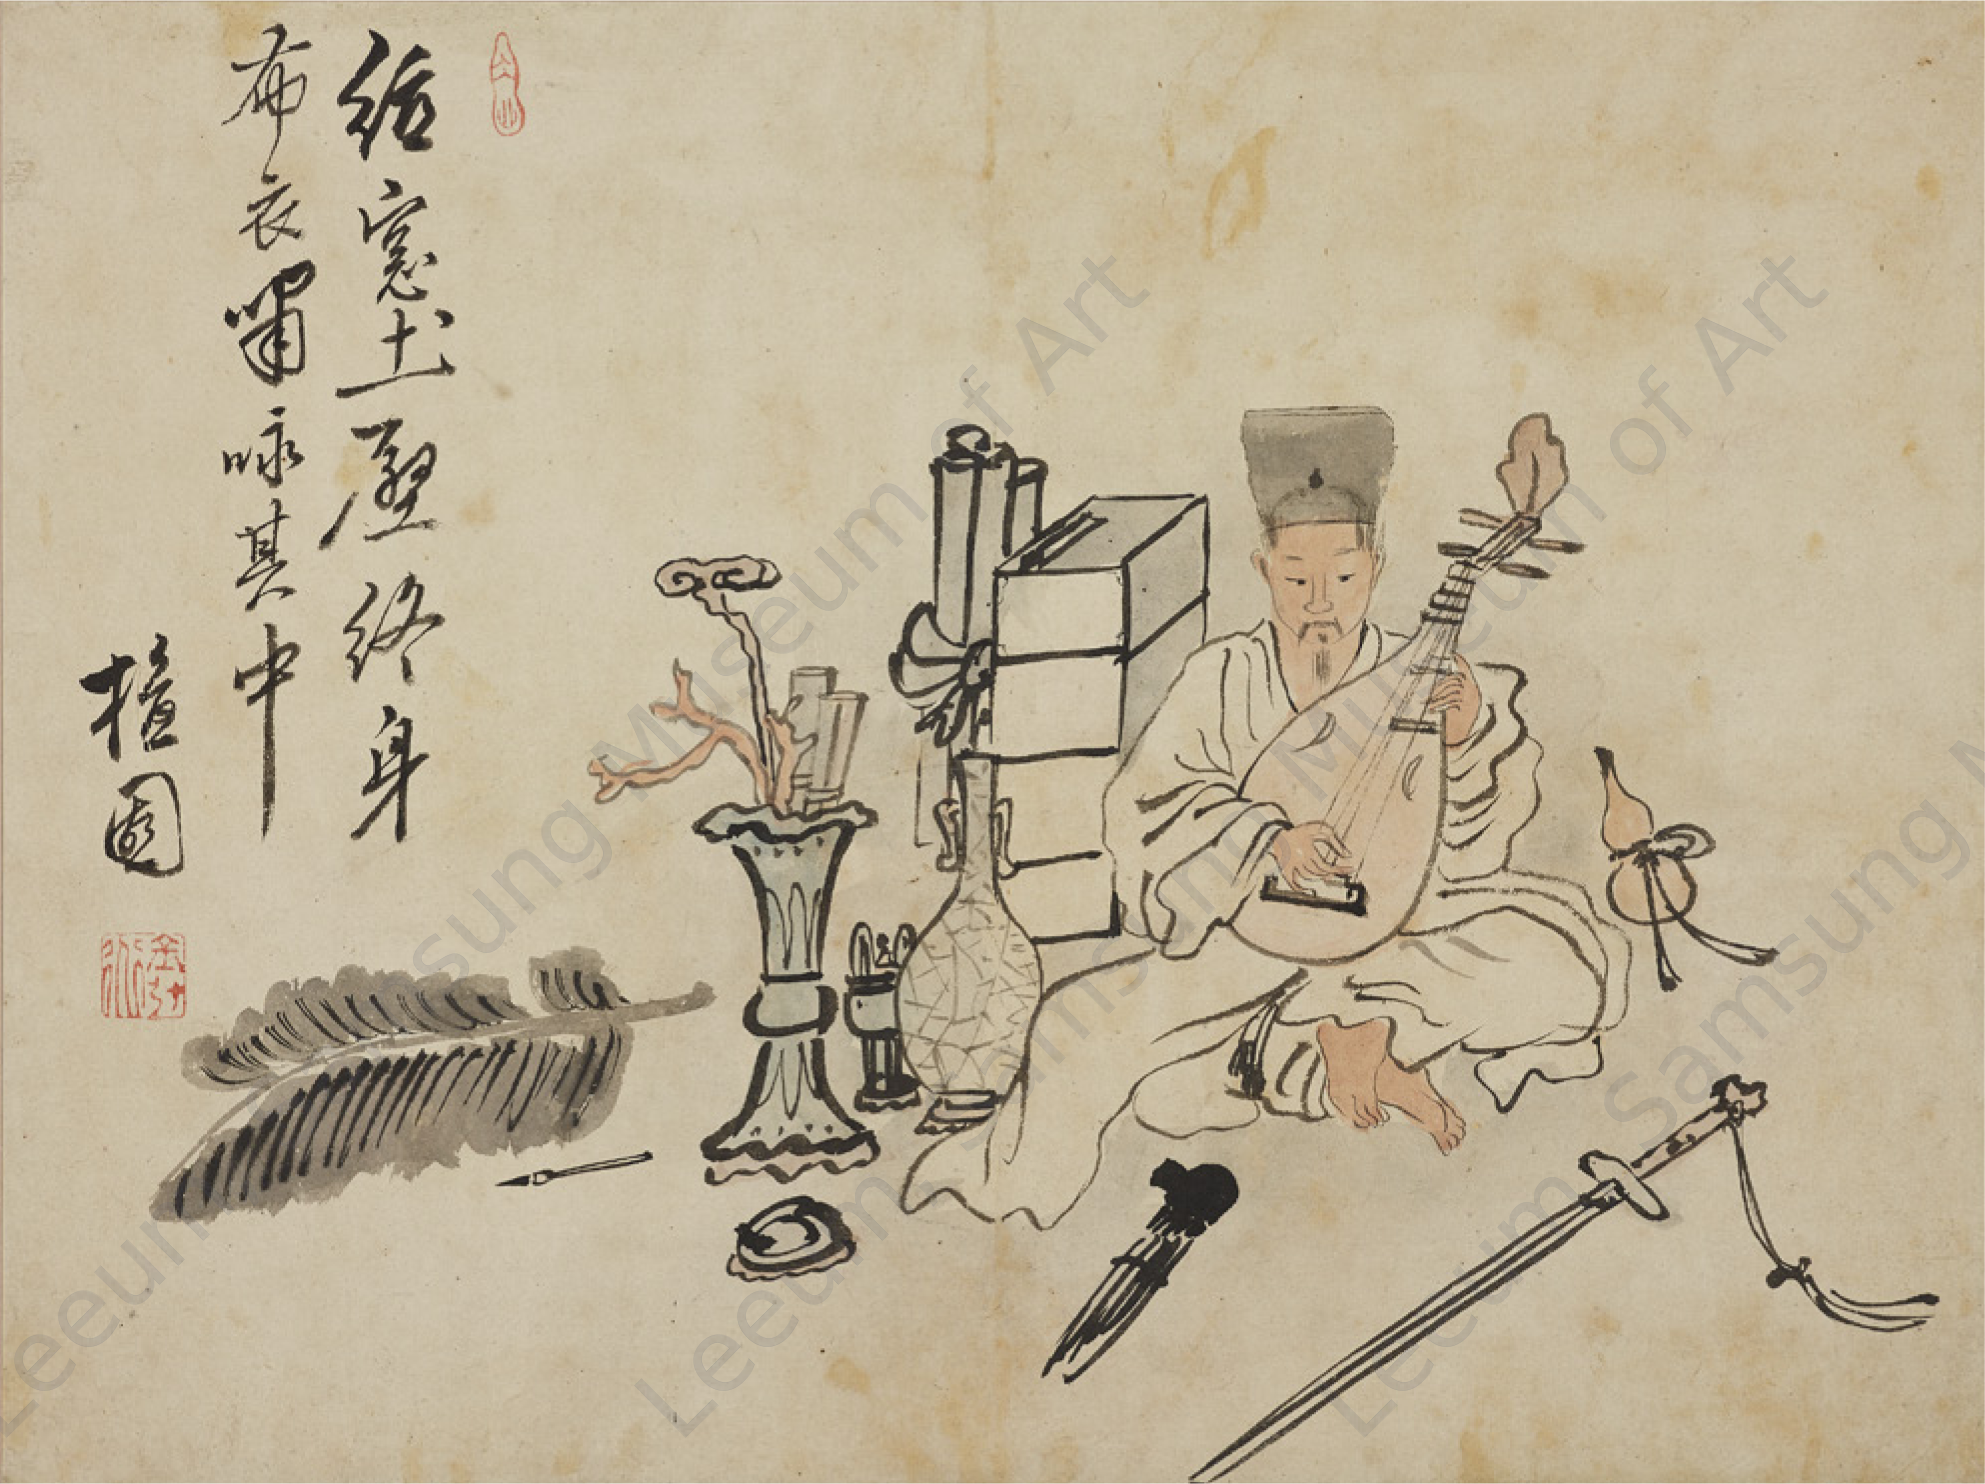 紙窓土壁終身
布衣嘯咏其中
檀園
Leeum, Samsung Museum of Art
Leeum, Samsung Museum of Art
Leeum, Samsung M